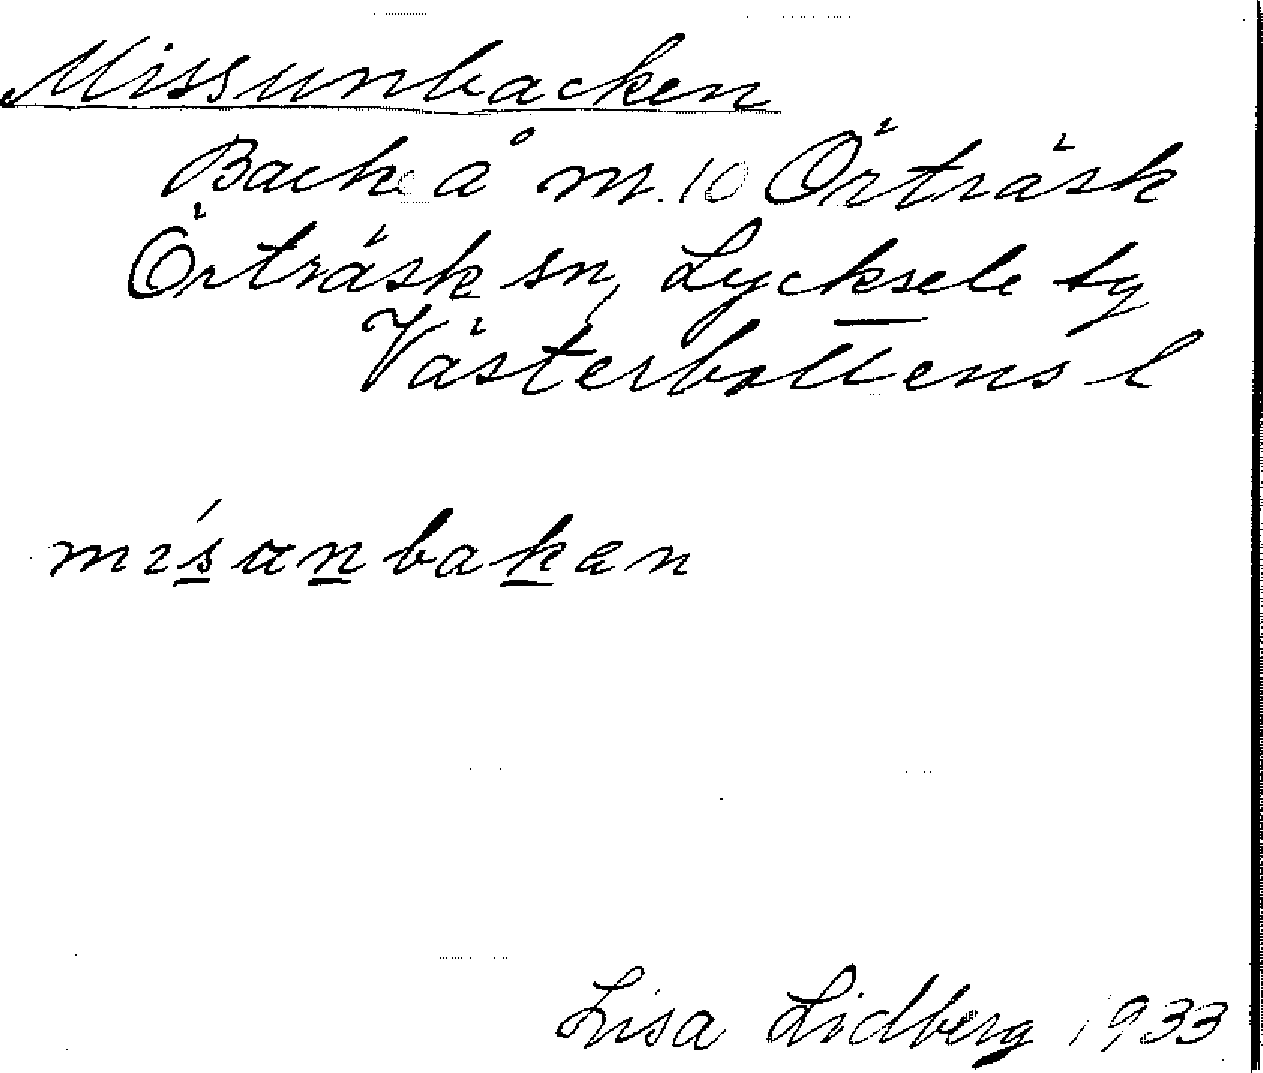 Missunbacken
Backe å nr. 10 Örträsk
Örträsk sn, Lycksele tg
Västerbottens l
misanbakan
Lisa Lidberg 1933